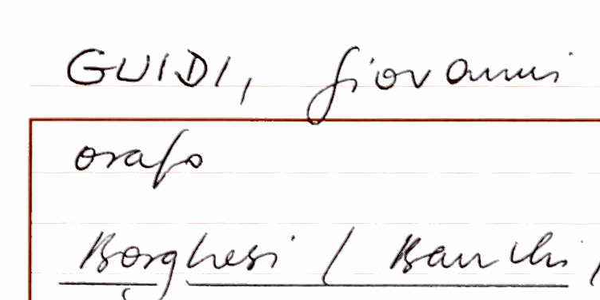 GUIDI, Giovanni
orafo
Borghesi / Banchi /